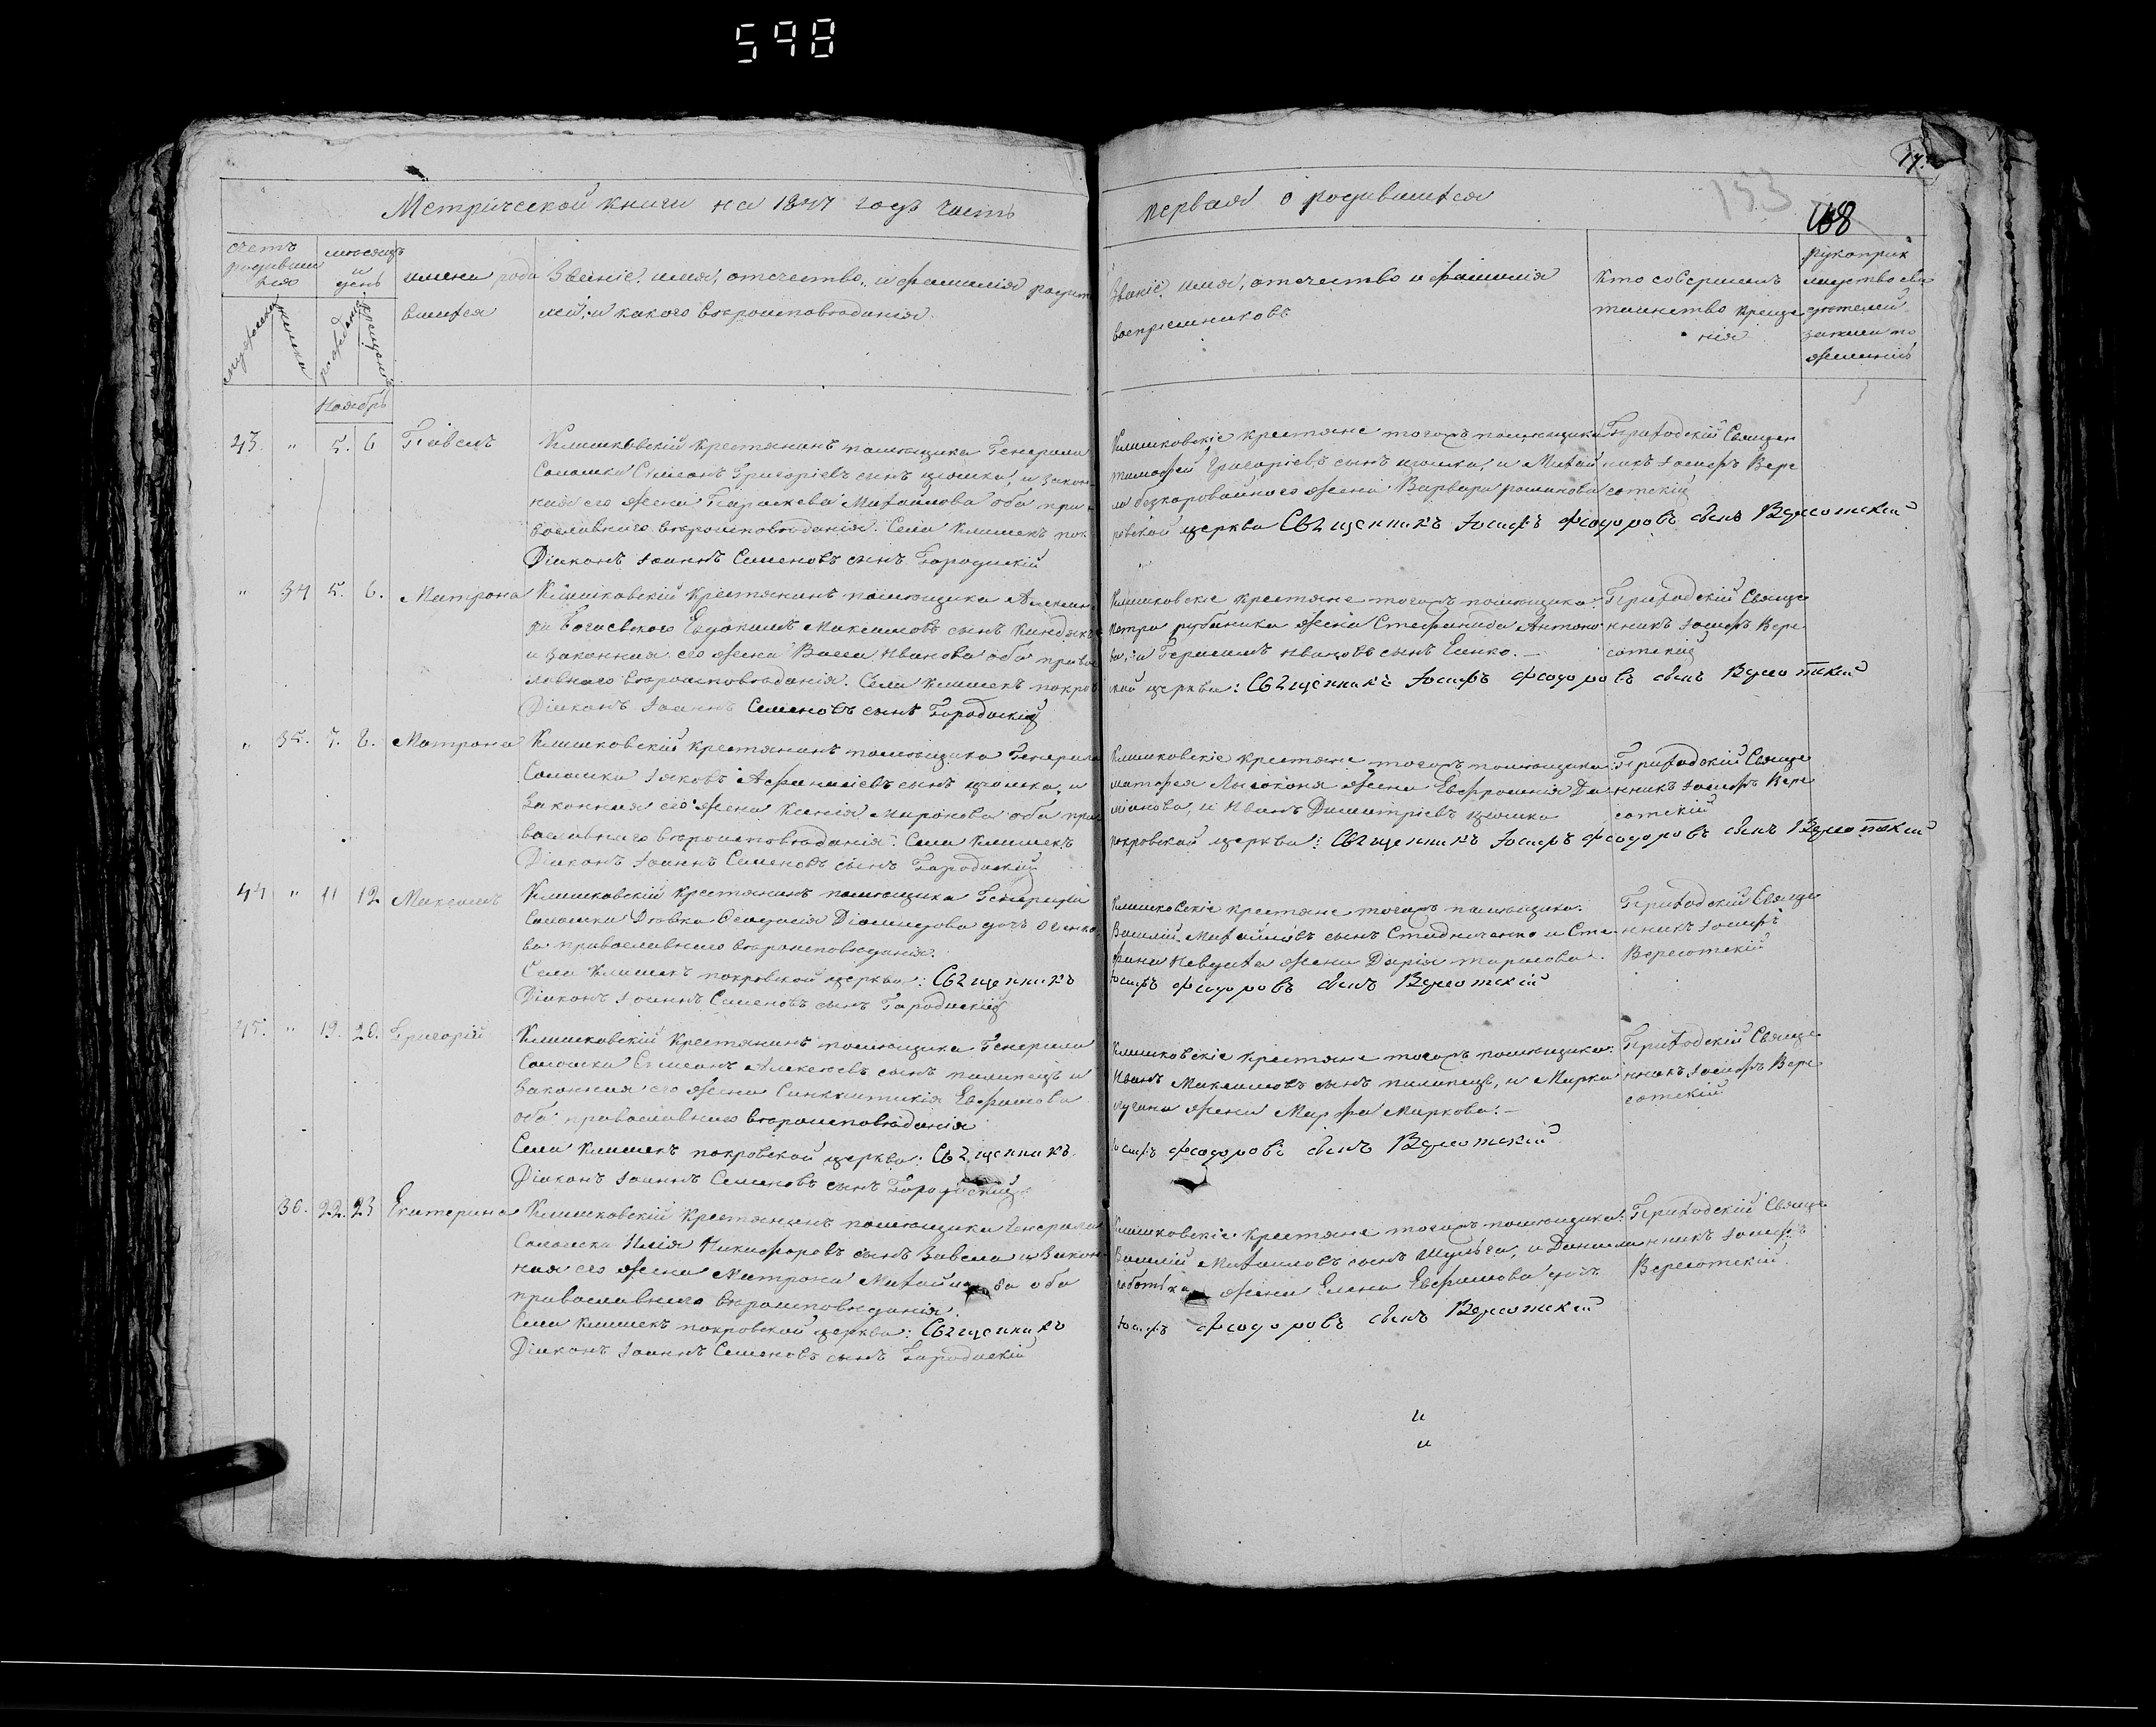 598
17.
Метрической книги на 1847 годъ часть
первая о родившихся
153
168
счетъ родившихся
мужеска
женска
мѣсяцъ и день
рожденія
крещенія
имена родившихся
Званіе, имя, отечество, и фамилія родителей, и какого вѣроисповѣданія.
Званіе, имя, отечество и фамилія воспріемниковъ
Кто совершалъ таинство крещенія
рукоприкладство свидѣтелей записи по желанію
Ноябрь
43. " 5. 6 Павелъ
Клишковскій крестянинъ помѣщика Генерала
Соломки Симеонъ Григоріевъ сынъ цюпка, и закон-
ная его жена Параскева Михайлова оба пра-
вославнаго вѣроисповѣданія. Села Клишекъ пок
Діаконъ Іоаннъ Семеновъ сынъ Городискій
Клишковскіе крестяне тогожъ помѣщика
тимофей Григоріевъ сынъ цюпка, и Михай
ла безкоровайного жена Варвара романова
ровской церкви Свѧщенникъ Іосифъ Феодоровъ сынъ Вересотскій
Приходскій Священ
никъ Іосифъ Вере
сотскій
" 34 5. 6. Матрона
Клишковскій крестянинъ помѣщика Алексан
ра Богаевского Евдокимъ Максимовъ сынъ
и законная его жена Васса Иванова оба право
славнаго вѣроисповѣданія. Села Клишекъ покров
Діаконъ Іоаннъ Семеновъ сынъ Городискій
Клишковскіе крестяне тогожъ помѣщика:
петра рубаника жена Стефанида Антоно
ва, и Герасимъ Ивановъ сынъ Енко.
кой церкви: Свѧщенникъ Іосифъ Феодоровъ сынъ Вересотскій
Приходскій Свяще
нникъ Іосифъ Вере
сотскій
" 35. 7. 8. Матрона
Клишковскій крестянинъ помѣщика Генерала
Соломки Іаковъ Афанасіевъ сынъ цюпка, и
Законная его жена Ксенія Миронова оба пра
вославнаго вѣроисповѣданія. Села Клишекъ
Діаконъ Іоаннъ Семеновъ сынъ Городискій
Клишковскіе крестяне тогожъ помѣщика
матфея Лысоконя жена Евфросинія Да
міанова, и Иванъ Димитріевъ цюпка
покровской церкви: Свѧщенникъ Іосифъ Феодоровъ сынъ Вересотскій
Приходскій Свяще
нникъ Іосифъ Вере
сотскій
44 " 11 12 Максимъ
Клишковскій крестянинъ помѣщика Генерала
Соломки Дѣвка Феодосія Діомидова дочъ
ва православнаго вѣроисповѣданія.
Села Клишекъ покровской церкви: Свѧщенникъ
Діаконъ Іоаннъ Семеновъ сынъ Городискій
Клишковскіе крестяне тогожъ помѣщика:
Василій Михайловъ сынъ Студниченко и Сте
фана Невдаха жена Дарія тарасова.
Іосифъ Феодоровъ сынъ Вересотскій
Приходскій Свяще
нникъ Іосифъ
Вересотскій
45. " 19. 20. Григорій
Клишковскій крестянинъ помѣщика Генерала
Соломки Симеонъ Алексѣевъ сынъ пилипецъ и
Законная его жена Синклитикія Евфимова
оба православнаго вѣроисповѣданія
Села Клишекъ покровской церкви: Свѧщенникъ
Діаконъ Іоаннъ Семеновъ сынъ Городискій
Клишковскіе крестяне тогожъ помѣщика:
Иванъ Максимовъ сынъ пилипецъ, и Марка
жена Марфа Маркова.
Іосифъ Феодоровъ сынъ Вересотскій
Приходскій Свяще
нникъ Іосифъ Вере
сотскій
36. 22. 23 Екатерина
Клишковскій крестянинъ помѣщика Генерала
Соломки Илія Никифоровъ сынъ и Закон
ная его жена Матрона Михайлова оба
православнаго вѣроисповѣданія
Села Клишекъ покровской церкви: Свѧщенникъ
Діаконъ Іоаннъ Семеновъ сынъ Городискій
Клишковскіе крестяне тогожъ помѣщика:
Василій Михаиловъ сынъ Шульга, и Даніила
жена Елена Евфимова дочъ
Іосифъ Феодоровъ сынъ Вересотскій
Приходскій Свяще
нникъ Іосифъ
Вересотскій